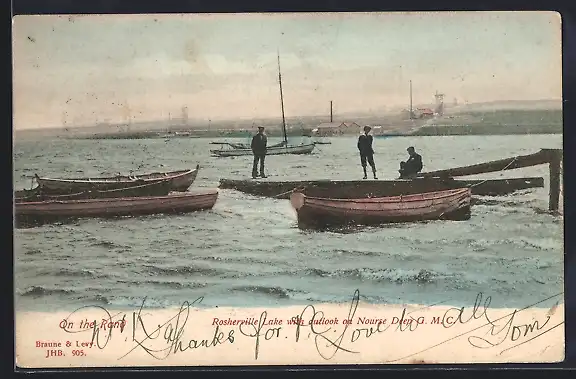 On the Rand Rosherville Lake with outlook on Nourse Deep G. M. C.
Thanks for P.C. Love to all Tom
Braune & Levy.
JHB. 905.